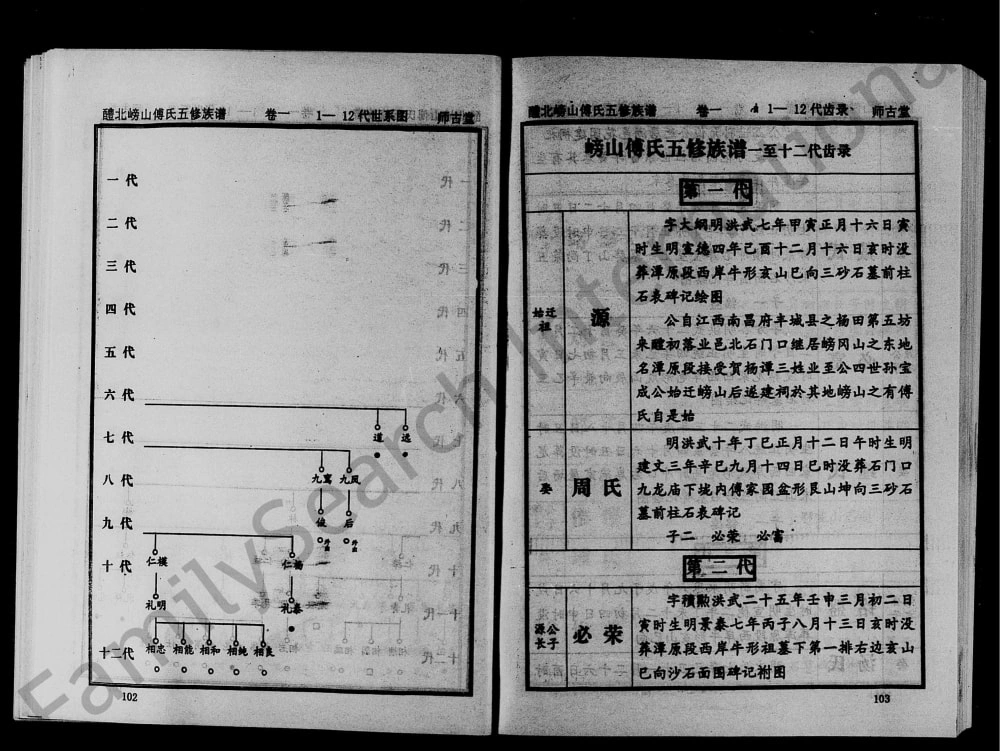 醴北崂山傅氏五修族谱 卷一 1—12代世系图 师古堂
一代
二代
三代
四代
五代
六代
七代 道 远
八代 九鸾 九凤
九代 俊 后
外出 外出
十代 仁模 仁杨
礼明 礼泰
十二代 相忠 相能 相和 相纯 相良
102
醴北崂山傅氏五修族谱 卷一 1—12代齿录 师古堂
崂山傅氏五修族谱一至十二代齿录
第一代
始迁祖
源
字大纲明洪武七年甲寅正月十六日寅
时生明宣德四年己酉十二月十六日亥时没
葬潭原段西岸牛形亥山巳向三砂石墓前柱
石表碑记绘图
公自江西南昌府丰城县之杨田第五坊
来醴初落业邑北石门口继居崂冈山之东地
名潭原段接受贺杨谭三姓业至公四世孙宝
成公始迁崂山后遂建祠於其地崂山之有傅
氏自是始
娶
周氏
明洪武十年丁巳正月十二日午时生明
建文三年辛巳九月十四日巳时没葬石门口
九龙庙下垅内傅家园盆形艮山坤向三砂石
墓前柱石表碑记
子二 必荣 必富
第二代
源公长子
必荣
字積勲洪武二十五年壬申三月初二日
寅时生明景泰七年丙子八月十三日亥时没
葬潭原段西岸牛形祖墓下第一排右边亥山
巳向沙石面围碑记祔图
103
FamilySearch International